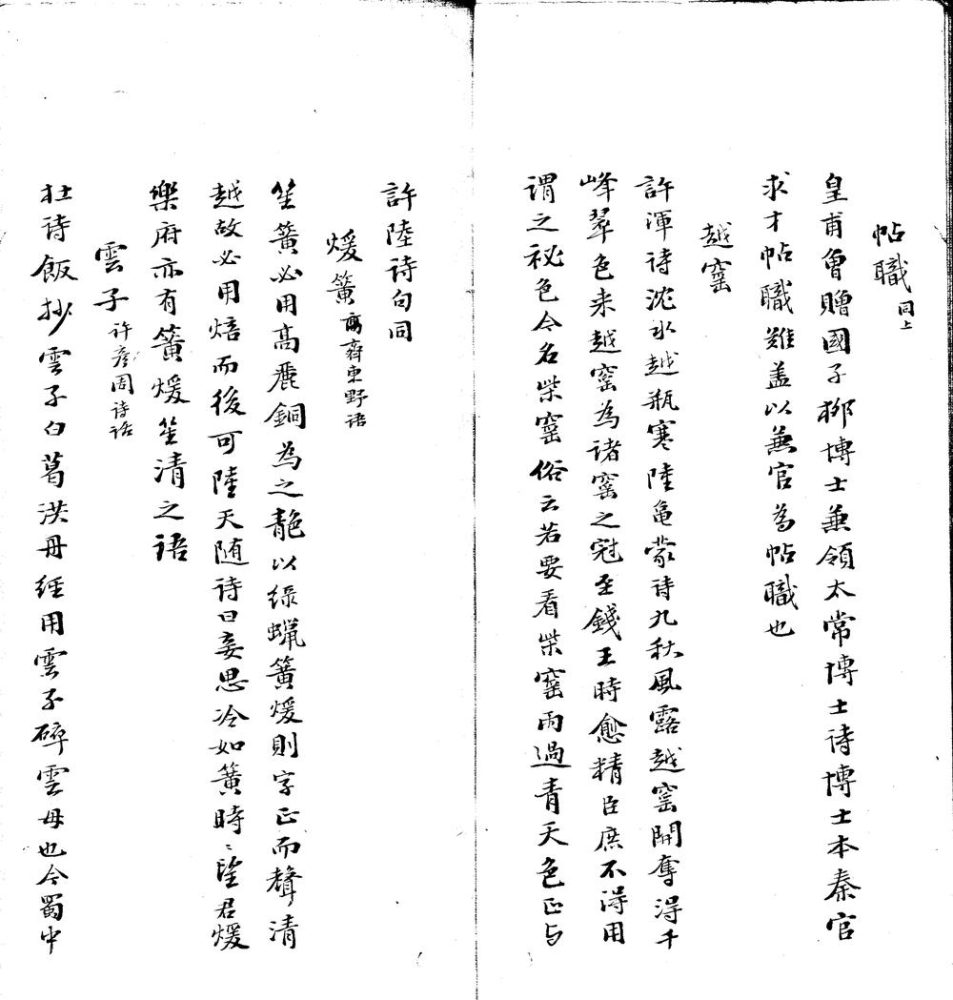 帖職同上
皇甫曾贈國子柳博士兼領太常博士詩博士本秦官
求才帖職難蓋以兼官為帖職也
越窰
許渾詩沈水越瓶寒陸龜蒙詩九秋風露越窰開奪得千
峰翠色来越窰為諸窰之冠至錢王時愈精臣庶不得用
謂之祕色今名柴窰俗云若要看柴窰雨過青天色正与
許陸詩句同
煖簧齊東野语
笙簧必用高麗銅為之靘以綠蠟簧煖則字正而聲清
越故必用焙而後可陸天随诗曰妾思冷如簧時〻望君煖
樂府亦有簧煖笙清之语
雲子许彦周诗话
杜诗飯抄雲子白葛洪丹經用雲子碎雲母也今蜀中